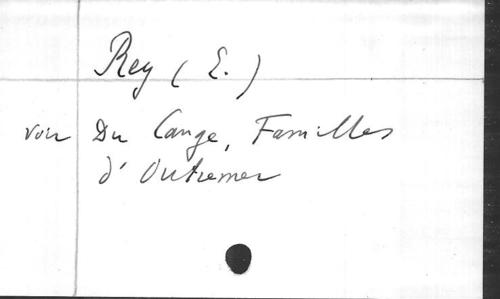 Rey (E.)
voir Du Cange, Familles
d'Outremer